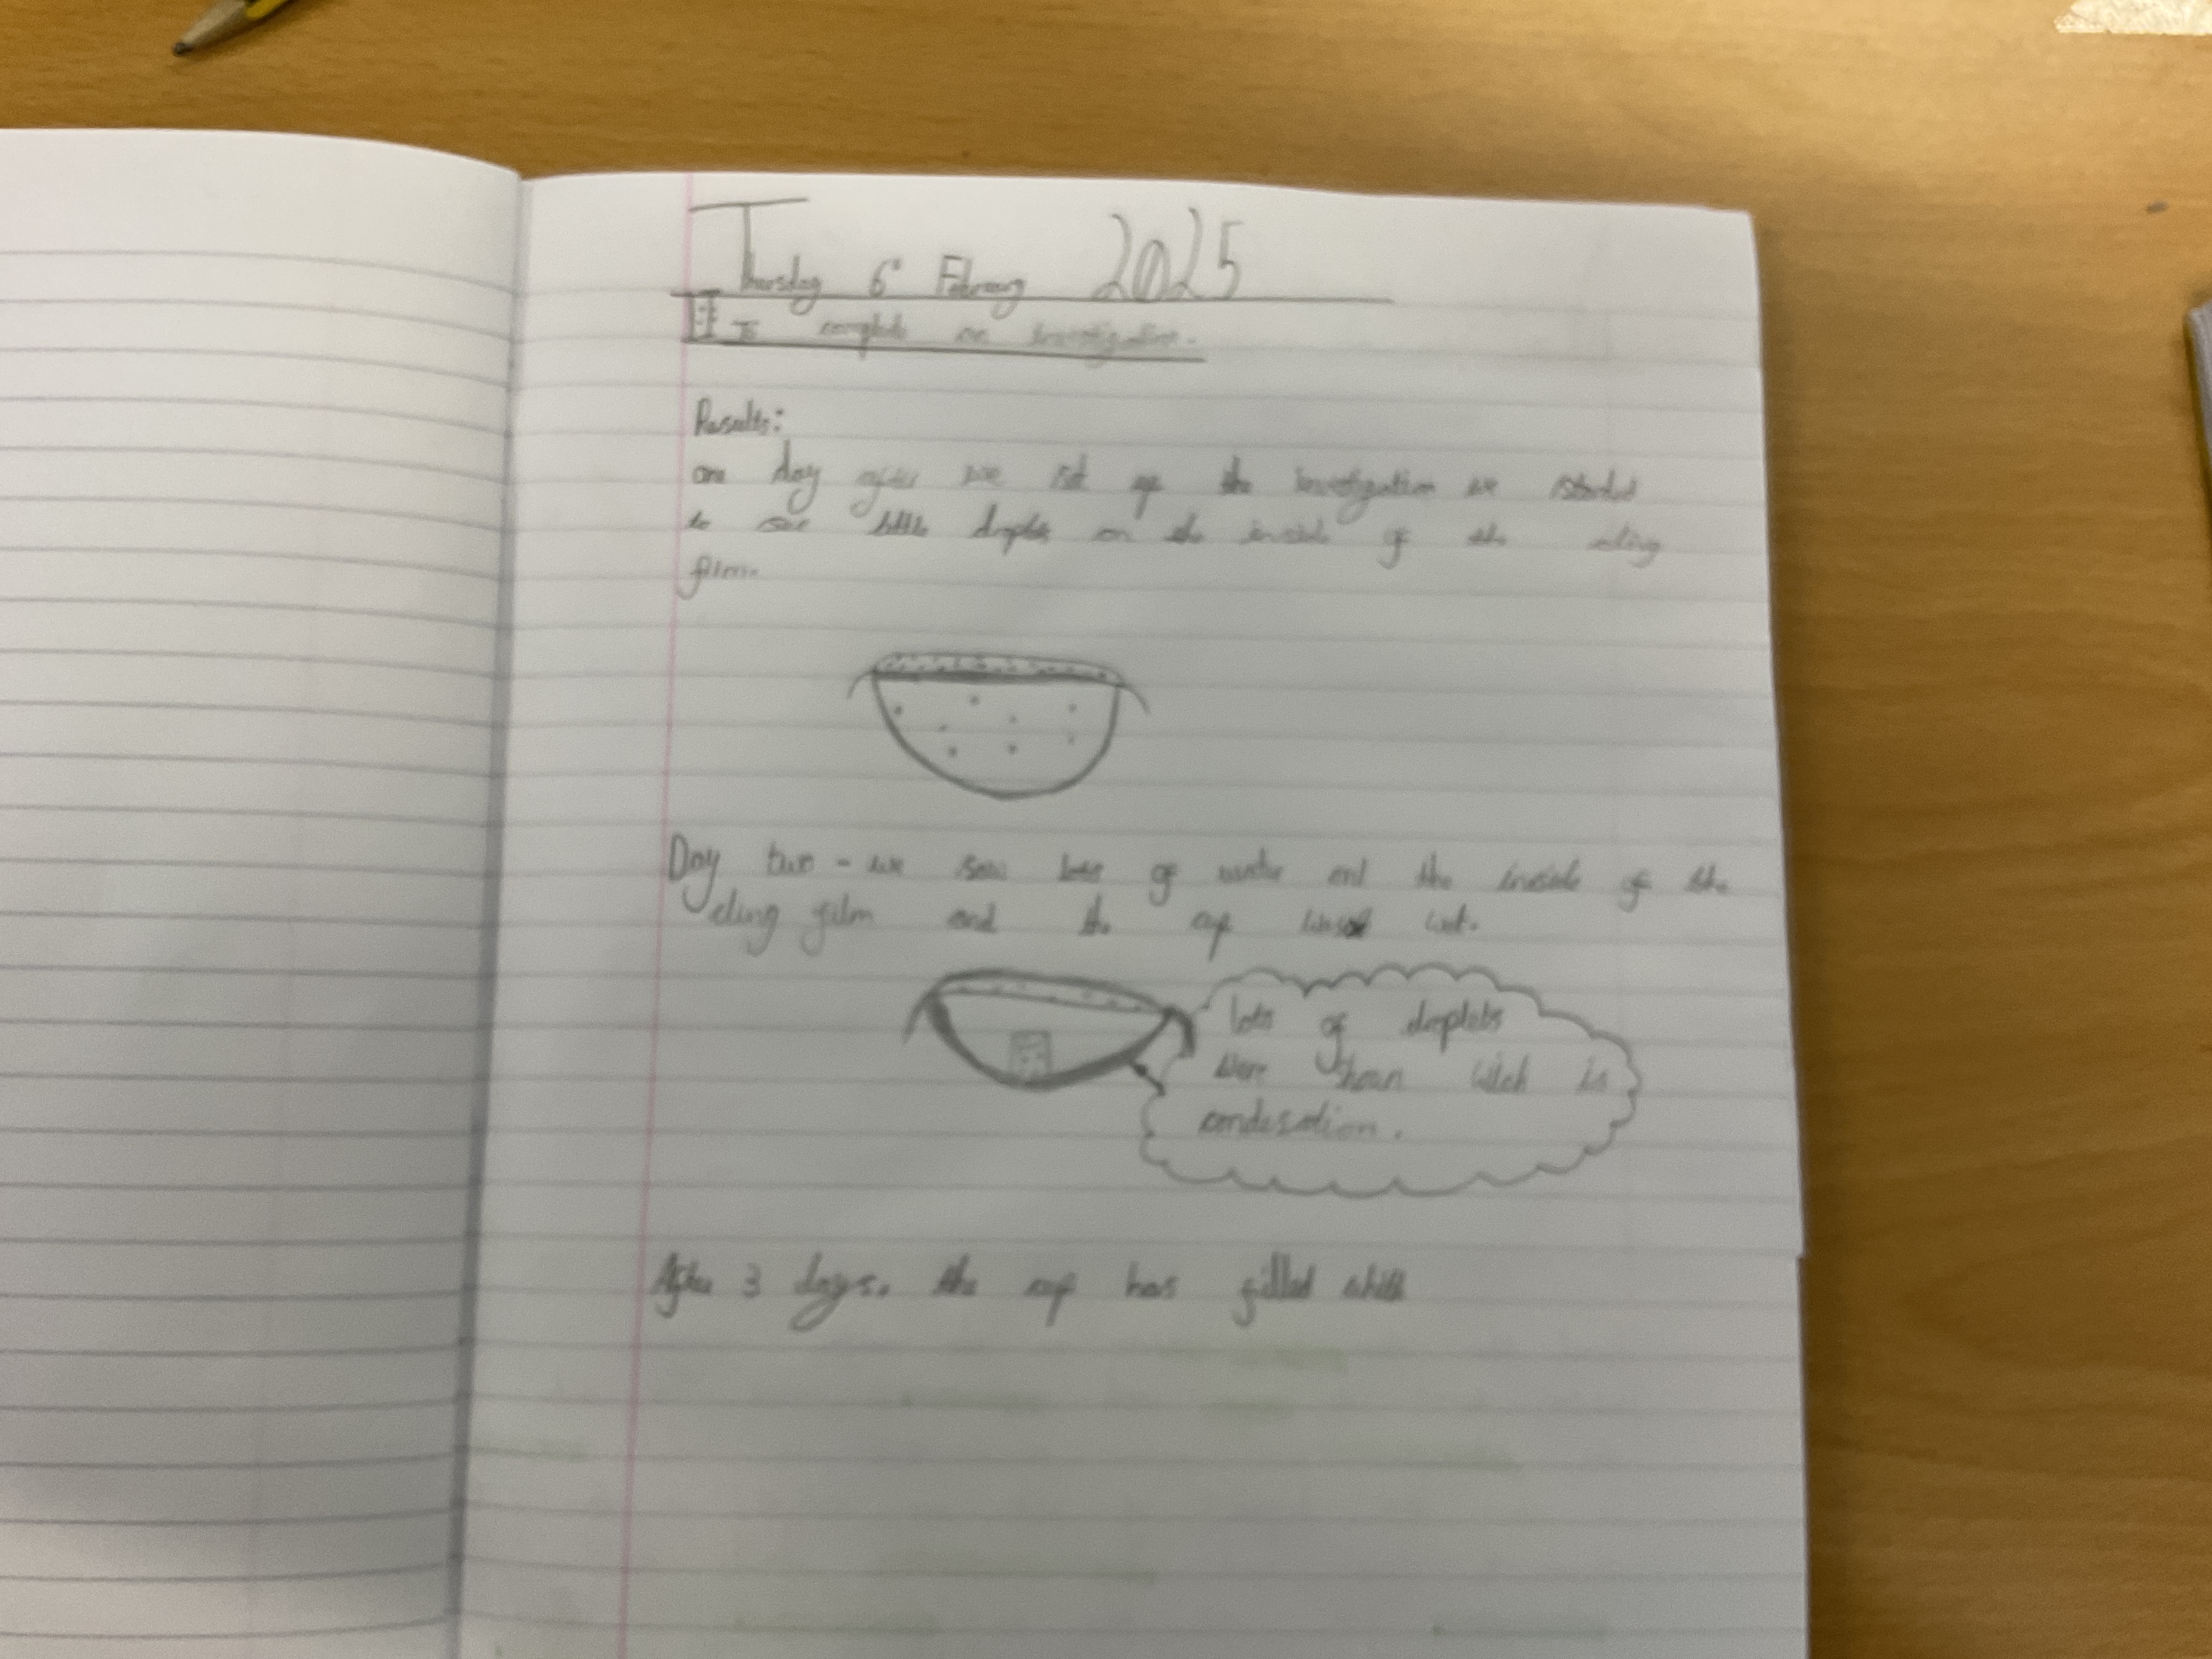 Thursday 6th February 2025
LI: To complete an investigation.
Results:
one day after we set up the investigation we started
to see little droplets on the inside of the cling
film.
Day two - we saw lots of water ont the inside of the
cling film and the cup was wet.
lots of droplets
were shown wich is
condesation.
After 3 days. the cup has filled whith